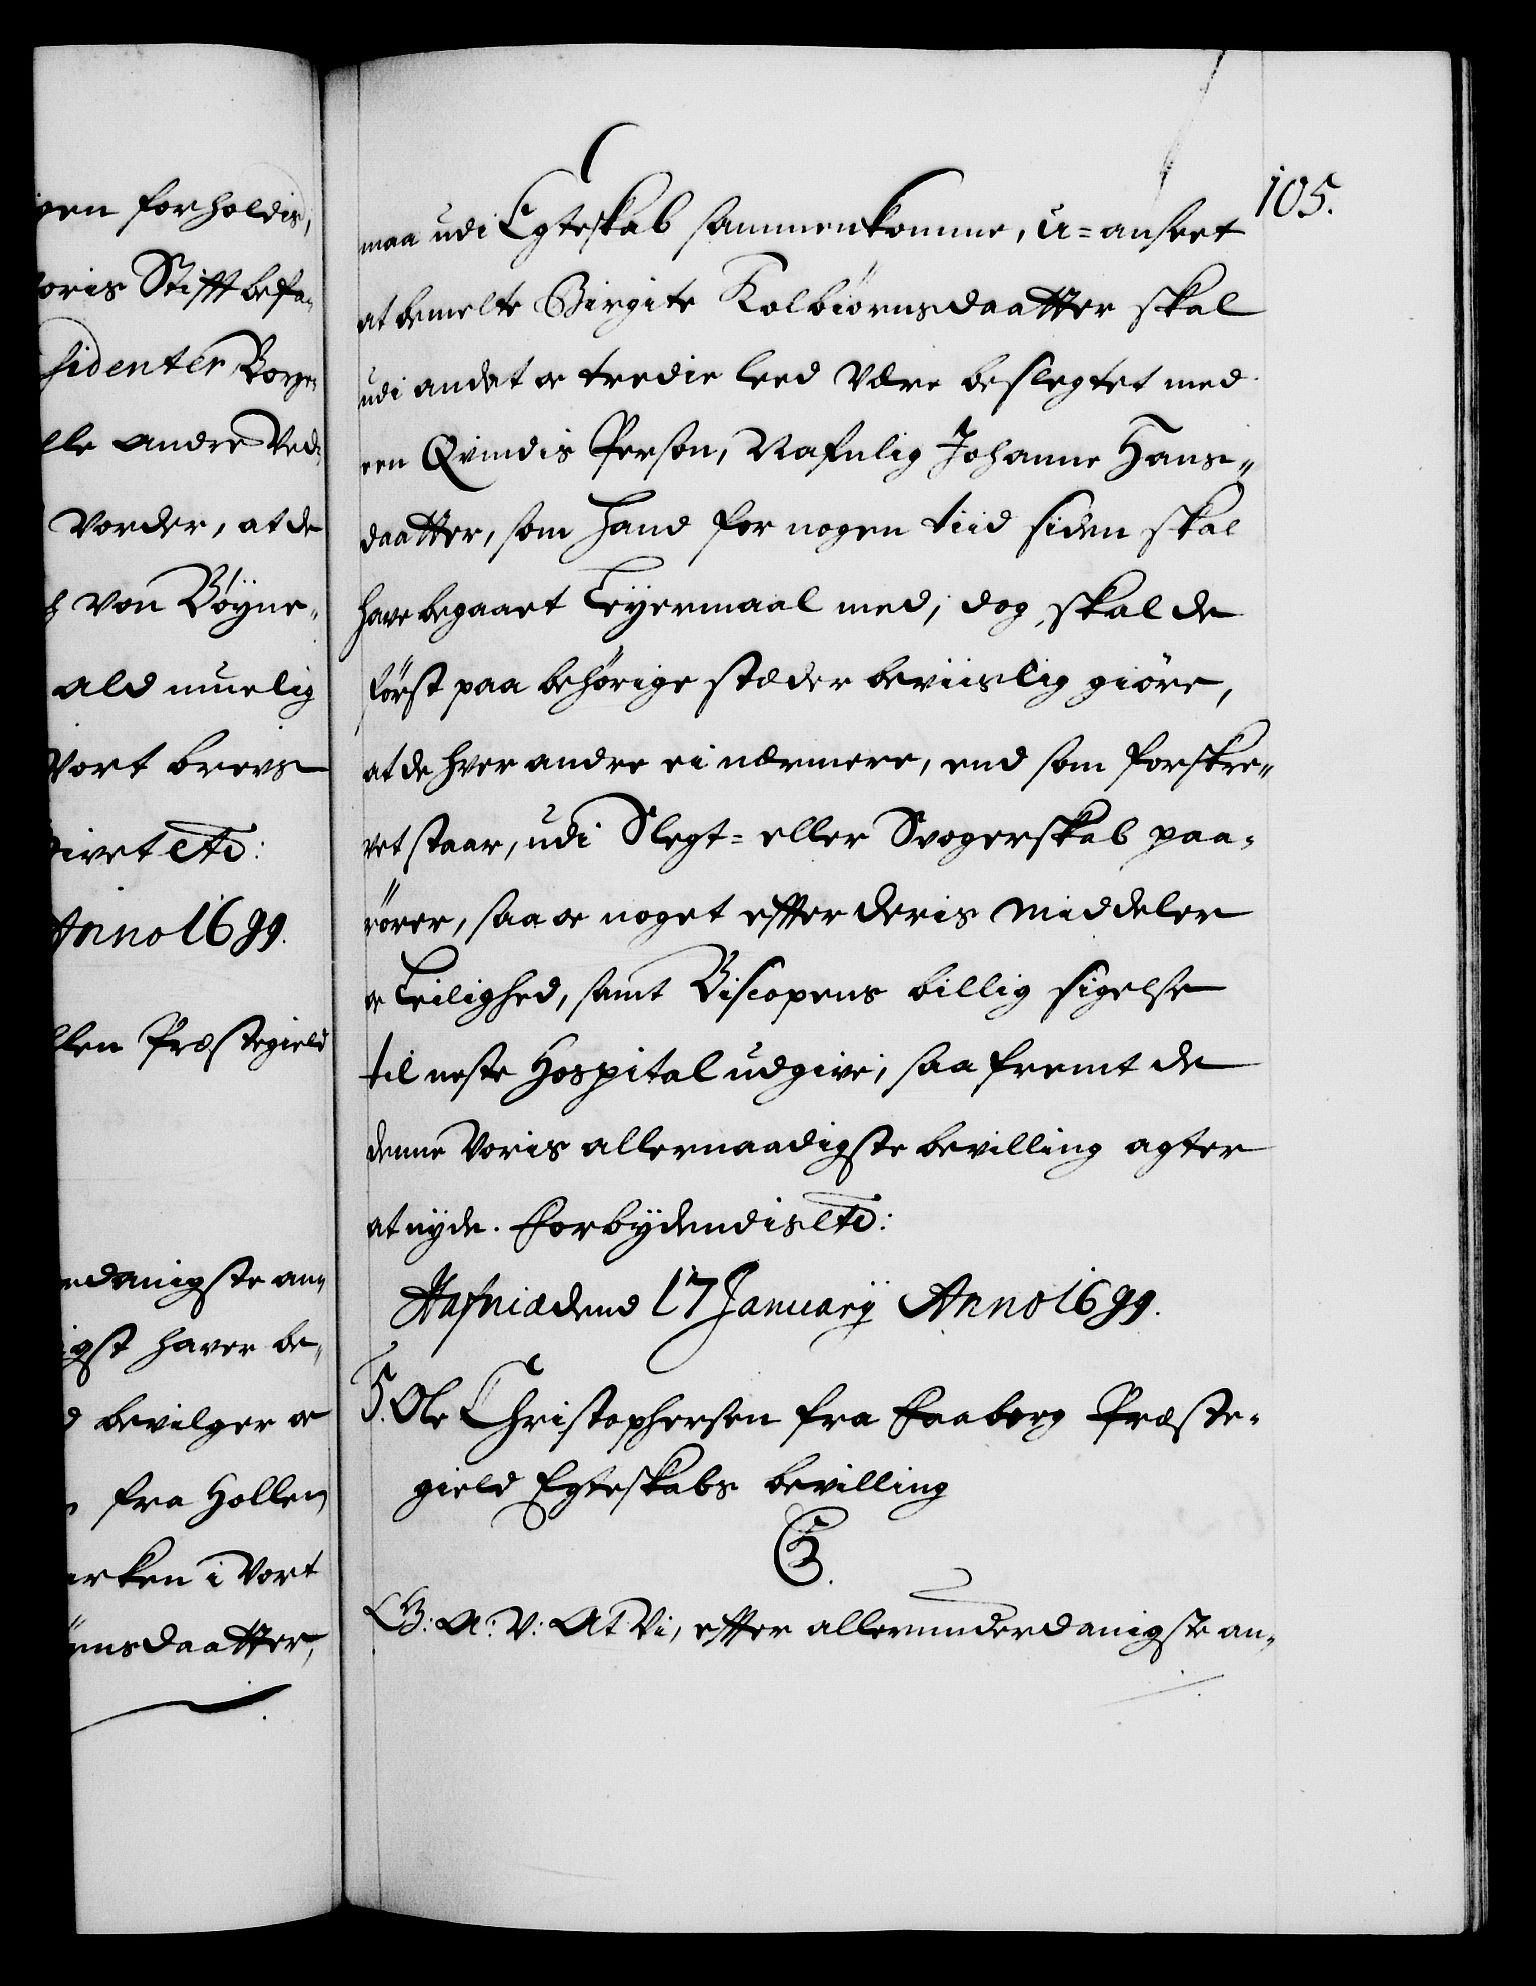 gen forholdis,
oris Stifft befa-
sidenter, Borge-
lle andre Ved-
vorder, at de
von Böyne-
ald muelig
Vort brevs
givet etc:
Anno 1699.
llen Præstegield
edanigste an-
igst haver be-
d bevilger og
fra Hollen
rken i Vort
örnsdaatter,
105.
maa udi Egteskab sammenkomme, u=anseet
at bemelte Birgite Kolbiörnsdaatter skal
udi andet og tredie leed være beslegtet med
een Qvindis Person, Nafnlig Johanne Hans-
daatter, som hand for nogen tiid siden skal
have begaaet Leyermaal med; dog skal de
först paa behörige stæder beviislig giöre,
at de hver andre ei nærmere, end som forskre-
vet staar, udi Slegt= eller Svogerskab paa-
rörer, saa og noget effter deris middeler
og Leilighed, samt Biscopens billig sigelse
til neste Hospital udgive; saafremt de
denne Voris allernaadigste bevilling agter
at nyde. Forbydendis etc:
Hafniæ dend 17 January Anno 1699.
5. Ole Christophersen fra Faaberg Præste-
gield Egteskabs bevilling
C5.
G: A: V: At Vi, effter allerunderdanigste an-